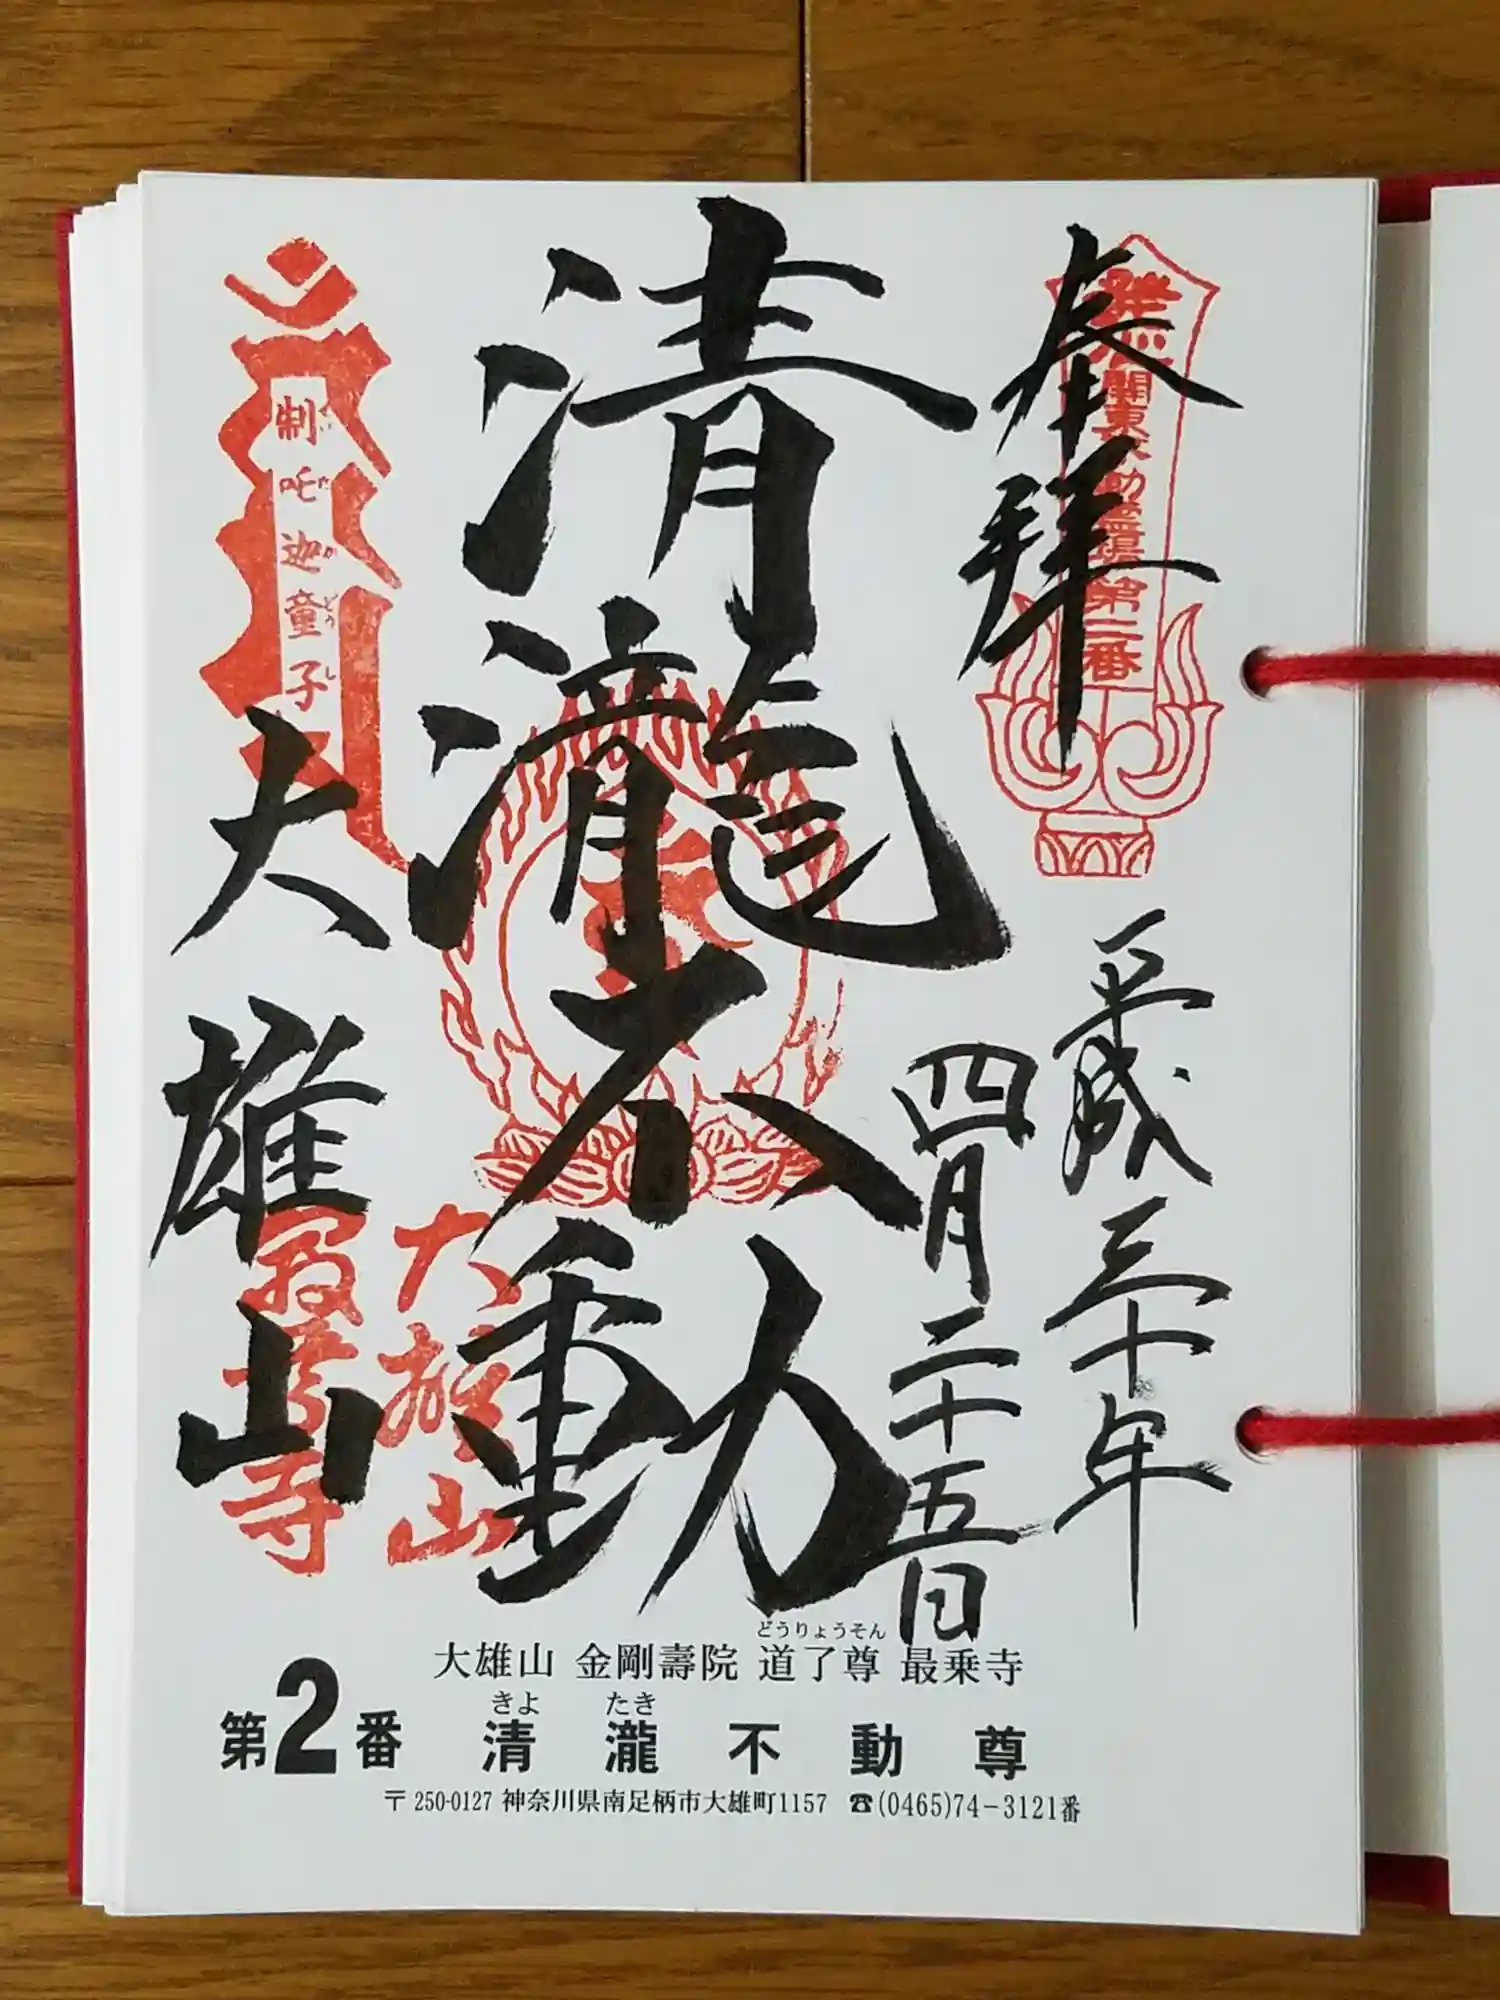 奉拝
発心
関東三十六不動霊場第二番
平成三十年
四月二十五日
清瀧不動
制吒迦童子
せいたかどうじ
大雄山
大雄山
最乗寺
どうりょうそん
大雄山 金剛壽院 道了尊 最乗寺
きよ たき
第2番 清瀧不動尊
〒250-0127 神奈川県南足柄市大雄町1157 ☎(0465)74-3121番